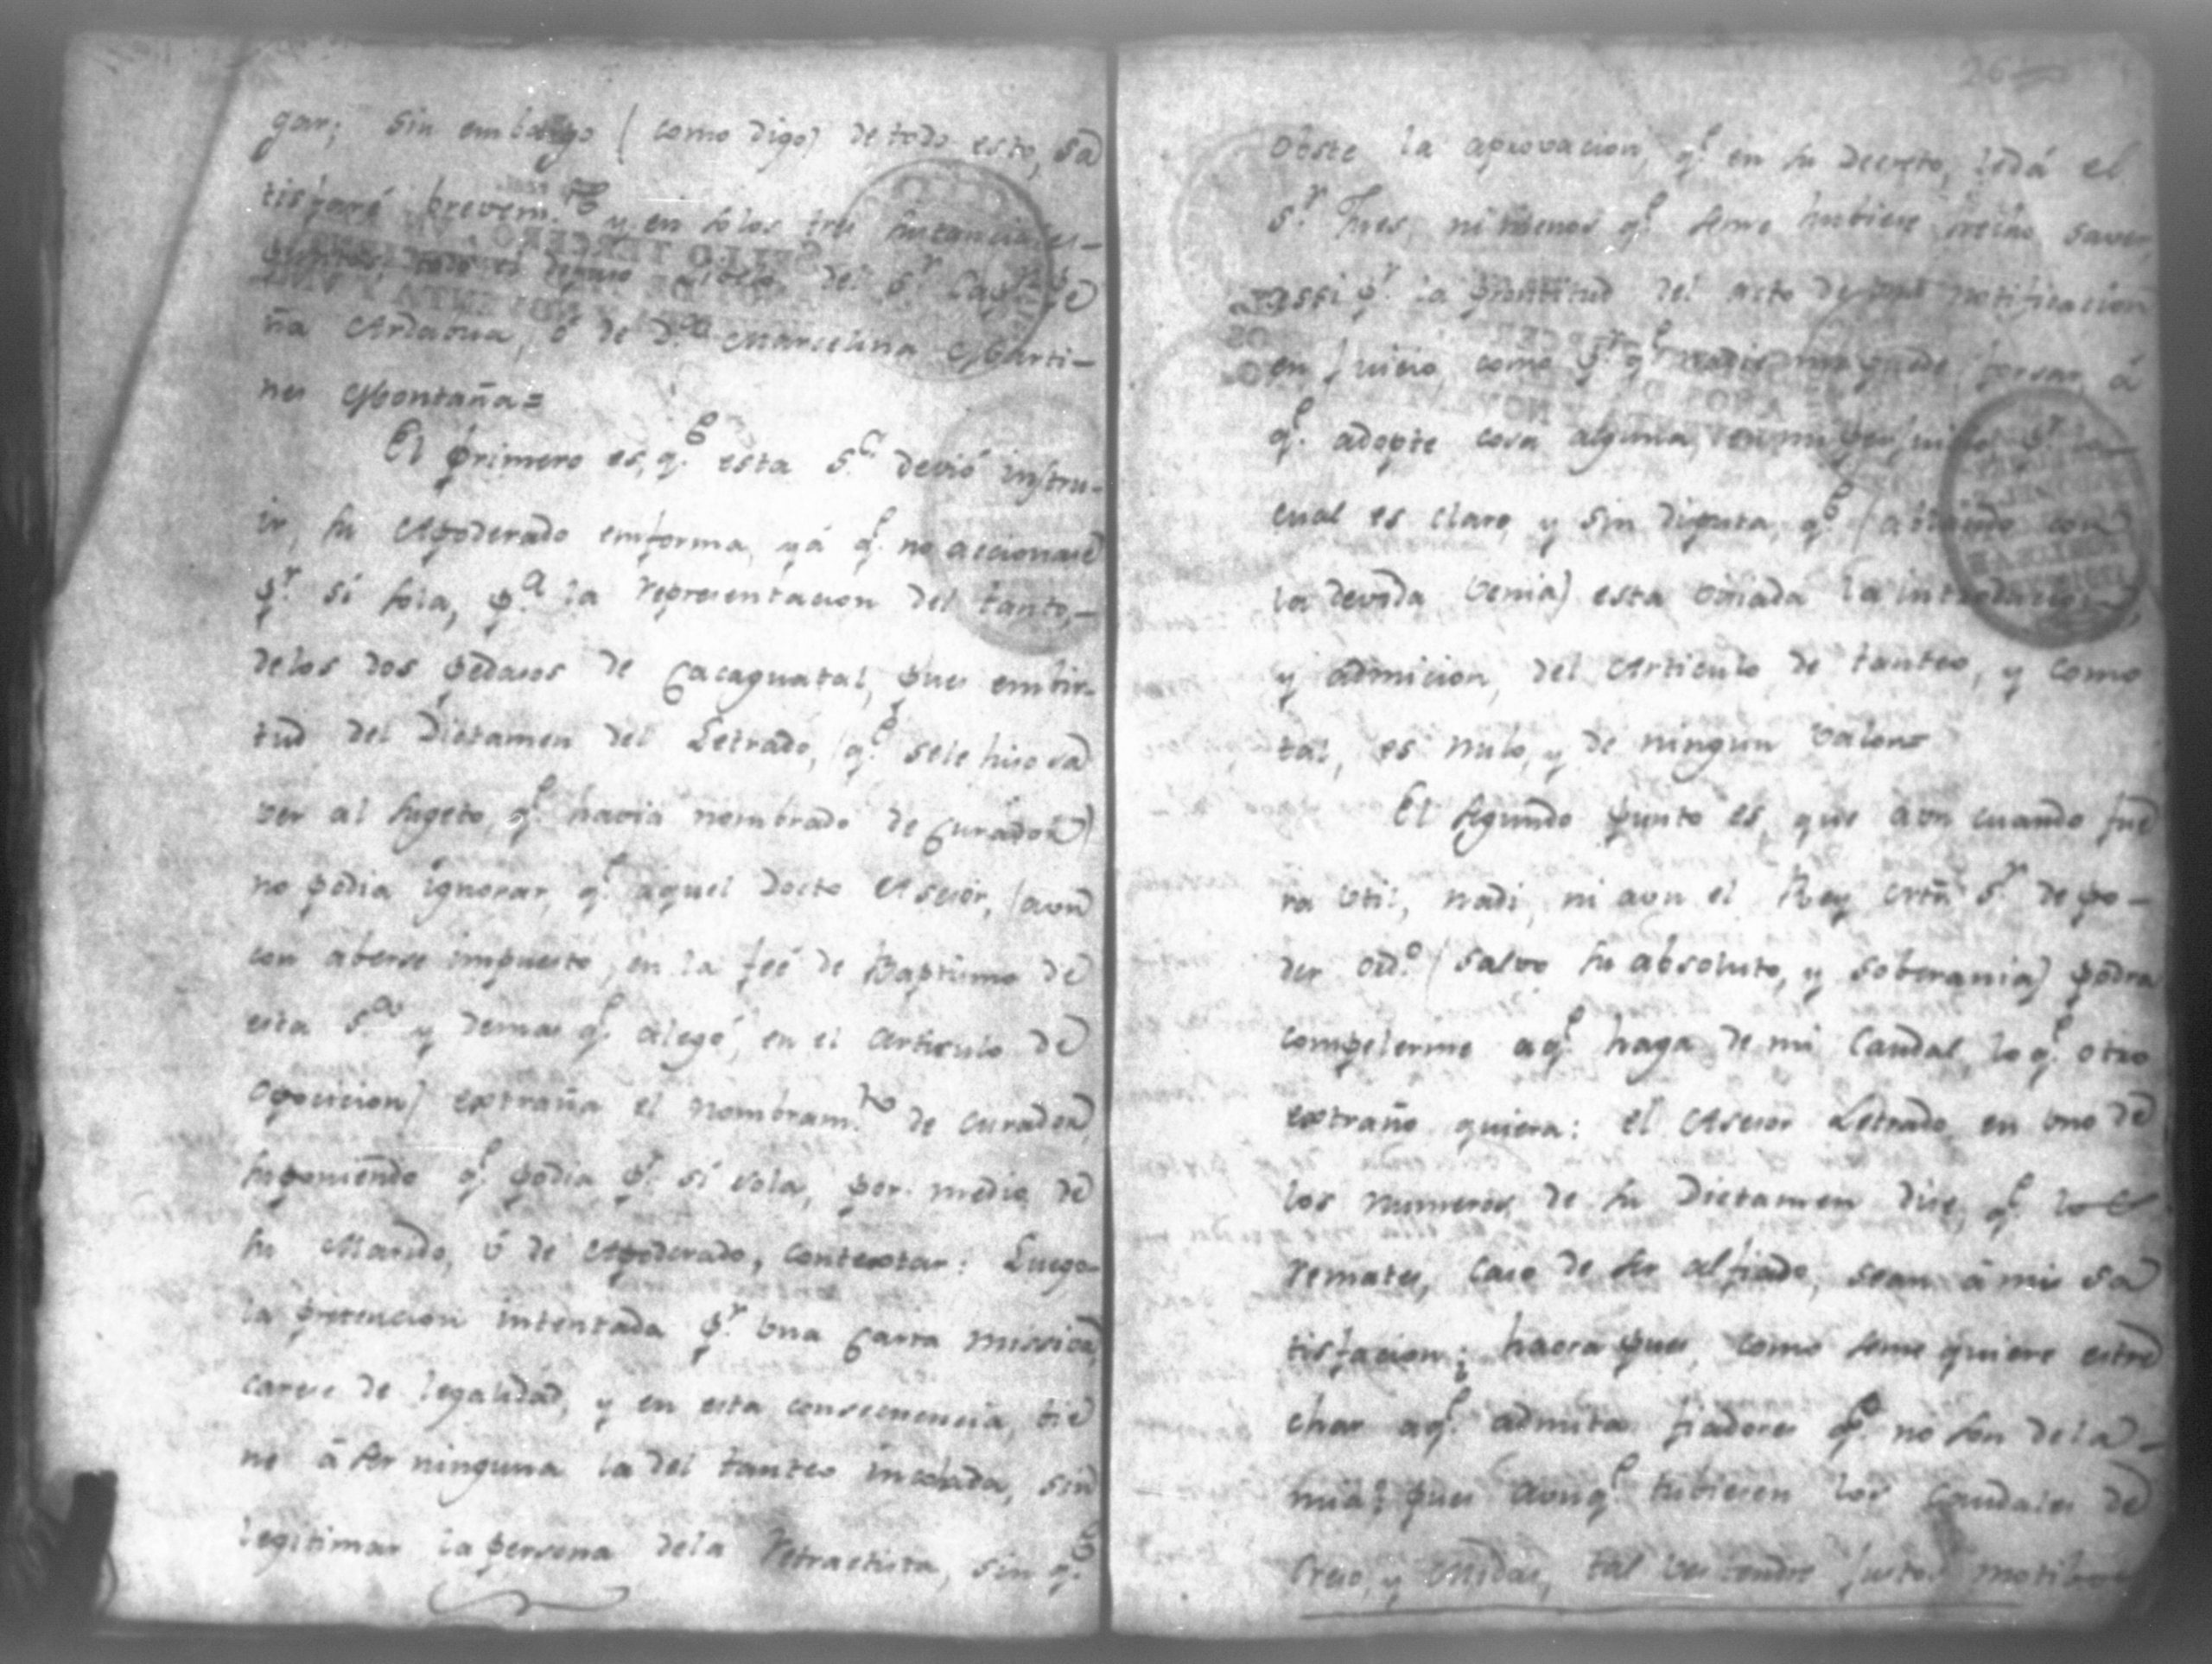 gar; sin embargo (como digo) de todo esto, sa
tisfaré brevem.te y en solos tres
del S.r Cap.n
ña Ardaña, ó de D.a Marcelina Marti-
nes Montaña=
El primero es, q.e esta S.a devió instru-
ir, su Apoderado emforma, yá q.e no accionase
p.r sí sola, p.a la representacion del tanto,-
delos dos pedasos de Cacaguatal, pues embir-
tud del Dictamen del Letrado, (q.e sele hiso sa
ver al sugeto, q.e havia nombrado de Curador)
no podia ignorar, q.e aquel docto Asesor, (aun
con aberse impuesto, en la feé de Baptismo de
esta S.a y demas q.e alegó, en el articulo de
oposicion) extraña el nombram.to de curador,
suponiendo q.e podia p.r sí sola, por medio de
su Marido, ó de Apoderado, contextar: Luego
la pretencion intentada p.r una Carta missiva,
carese de legalidad, y en esta consecuencia, tie
ne á ser ninguna la del tanteo incohada, sin
legitimar la persona dela retractista, sin q.e
26
obste la aprovacion, q.e en su Decreto, ledá el
S.r Jues, ni menos q.e seme hubiese hecho saver,
assi p.r la prontitud del acto de notificacion
en juicio, como p.r q.e nadie me puede forsar á
q.e adopte cosa alguna, en mi perjuicio, p.r lo
cual es claro, y sin disputa, q.e (ablando con
la devida venia) esta viciada la introducion,
y admicion, del Articulo de tanteo, y como
tal, es nulo, y de ningun valor=
El segundo punto es, que aun cuando fue
ra util, nadi, ni aun el Rey Ntrõ S.r de po-
der ord.o (salvo su absoluto, y soberania) podra
compelerme aq.e haga de mi Caudal, lo q.e otro
extraño quiera: el Asesor Letrado, en uno de
los numeros, de su Dictamen dise, q.e los
remates, caso de ser alfiado, sean á mi sa
tisfacion; haora pues, como seme quiere estre
char aq.e admita fiadores q.e no son dela-
mia? pues aunq.e tubiesen los Caudales de
Creso, y Midas, tal ves tendre justos motibos